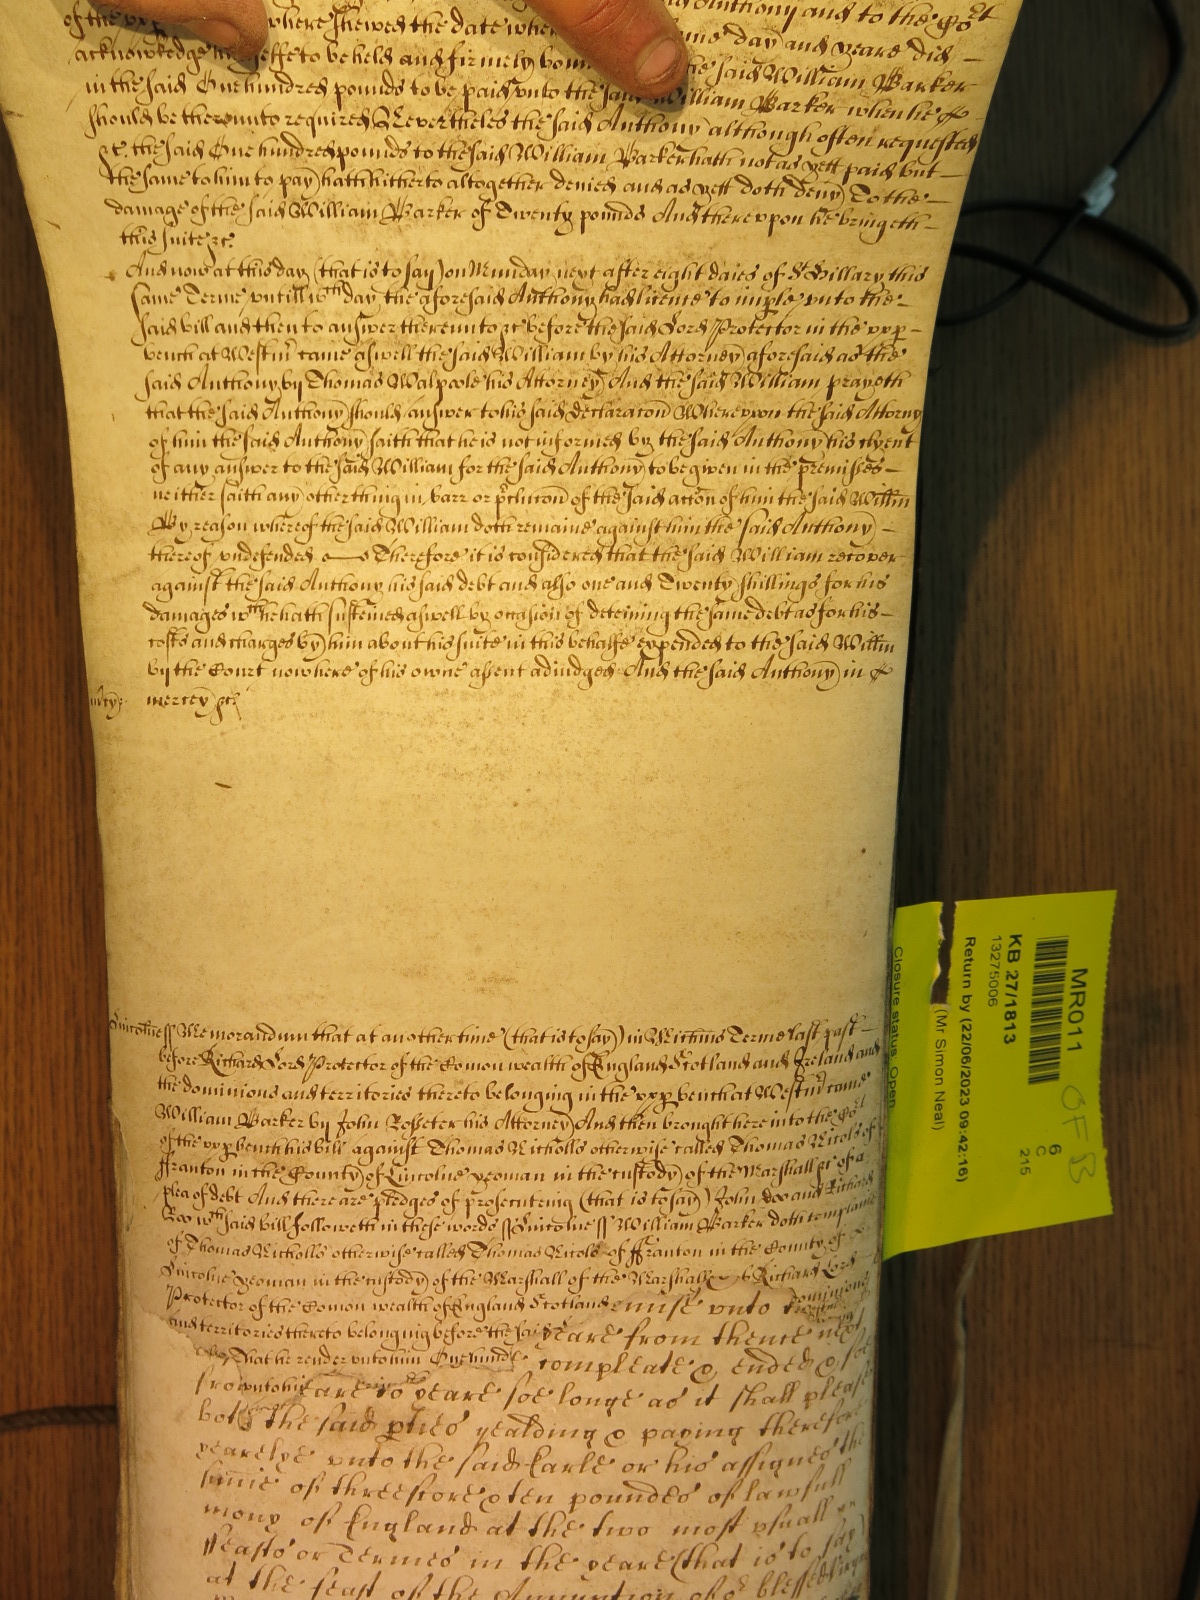 Anthony and to the Cort
of the upper where shewed the date when same day and yeare did
acknowledge himselfe to be held and firmely bound the said William Barker
in the said One hundred pounds to be paid unto the said William Barker when he
should be thereunto required Neverthelesse the said Anthony although often requested
&c. the said One hundred pounds to the said William Barker hath not as yett paid but
the same to him to pay hath hitherto altogether denied and as yett doth deny To the
damage of the said William Barker of Twenty pounds And thereuppon he bringeth
this suite &c.
And now at this day (that is to say) on Munday next after eight daies of St Hillary this
same Terme untill wch day the aforesaid Anthony had licence to imple unto the
said bill and then to answer thereunto &c before the said Lord Protector in the upper
bench at Westmr came aswell the said William by his Attorney aforesaid as the
said Anthony by Thomas Walpoole his Attorney And the said William prayeth
that the said Anthony should answer to his said declaracon Whereupon the said Attorny
of him the said Anthony saith that he is not informed by the said Anthony his clyent
of any answer to the said William for the said Anthony to be given in the premisses
neither saith any other thing in barr or pclucon of the said accon of him the said Willm
By reason whereof the said William doth remaine against him the said Anthony
thereof undefended Therefore it is considered that the said William recover
against the said Anthony his said debt and also one and Twenty shillings for his
damages wch he hath susteined aswell by occasion of deteining the same debt as for his
costs and charges by him about his suite in this behalfe expended to the said Willm
by the Court now here of his owne assent adiudged And the said Anthony in
mercy &c
Lincolne ss Memorandum that at another time (that is to say) in Michms Terme last past
before Richard Lord Protector of the Comon wealth of England Scotland and Ireland and
the dominions and territories thereto belonging in the upper bench at Westmr came
William Barker by John Rosseter his Attorney And then brought here into the Cort
of the upper bench his bill against Thomas Nicholls otherwise called Thomas Nicols of
ffranton in the County of Lincolne yeoman in the custody of the Marshall &c of a
plea of debt And there are pledges of prosecuteing (that is to say) John doo and Richard
Roo wch said bill followeth in these words ss Lincolne ss William Barker doth complaine
of Thomas Nicholls otherwise called Thomas Nicols of ffranton in the County of
Lincolne yeoman in the custody of the Marshall of the Marshall Richard Lord
Protector of the Comon wealth of England Scotland dominions
and territories thereto belonging before the said
That he render unto him One hund
unto his
mise unto
yeare from thence next
compleate & ended & soe
from yeare to yeare soe longe as it shall please
both the said pties yealding & paying therefore
yearelye unto the said Earle or his assignes the
sume of threescore & ten poundes of lawfull
mony of England at the two most usuall
ffeasts or Termes in the yeare (that is to say)
at the feast of the Annuntion of or blessed
MR011
KB 27/1813
13275006
Return by (22/06/2023 09:42:16)
(Mr Simon Neal)
Closure status: Open
6
C
215
OF B